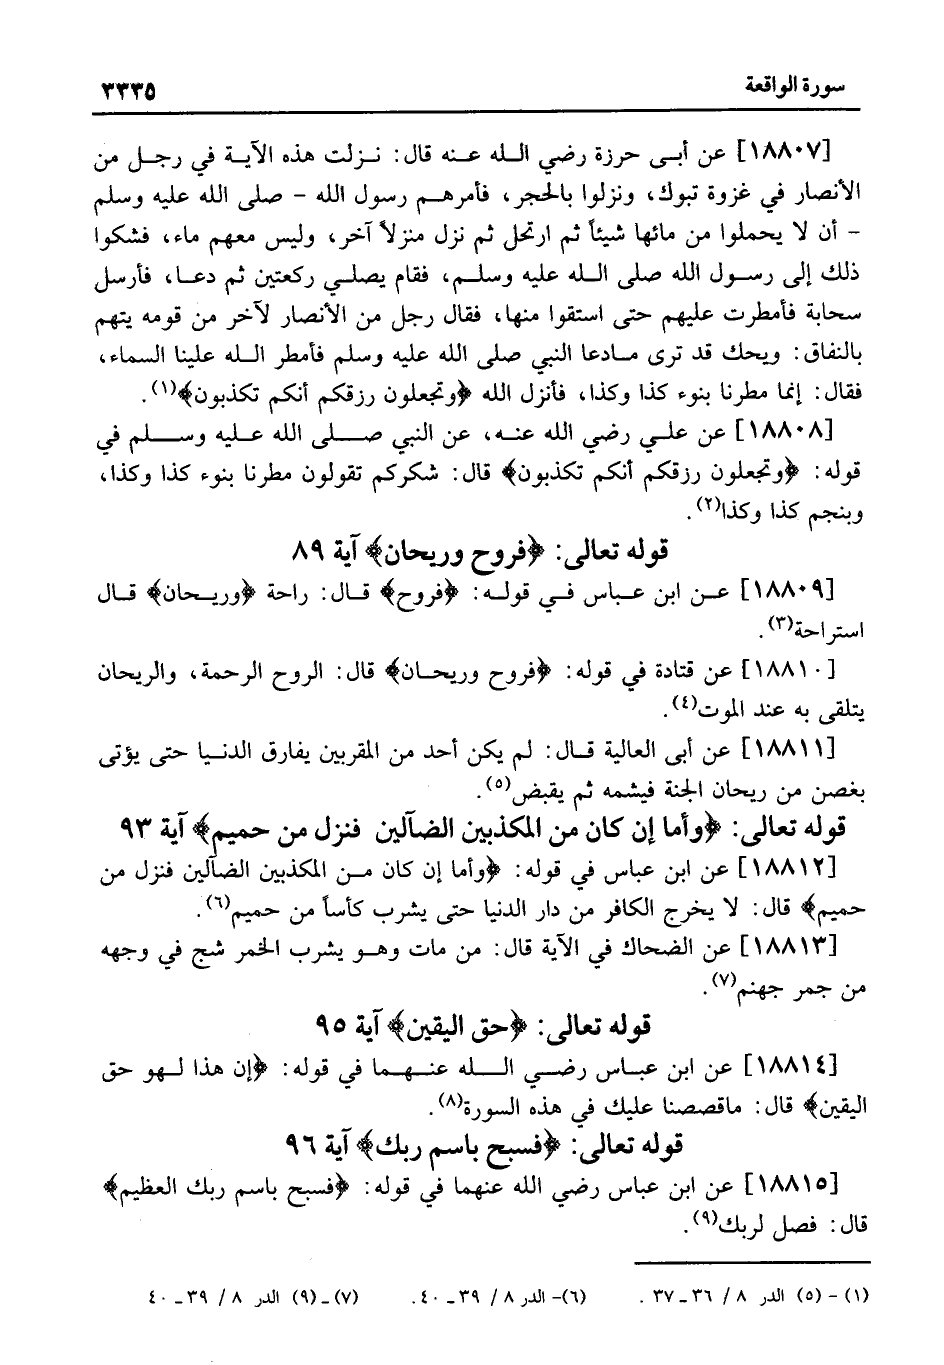 سورة الواقعة ٣٣٣٥
[١٨٨٠٧] عن أبى حرزة رضي الله عنه قال: نزلت هذه الآية في رجل من
الأنصار في غزوة تبوك، ونزلوا بالحجر، فأمرهم رسول الله - صلى الله عليه وسلم
- أن لا يحملوا من مائها شيئاً ثم ارتحل ثم نزل منزلاً آخر، وليس معهم ماء، فشكوا
ذلك إلى رسول الله صلى الله عليه وسلم، فقام يصلي ركعتين ثم دعا، فأرسل
سحابة فأمطرت عليهم حتى استقوا منها، فقال رجل من الأنصار لآخر من قومه يتهم
بالنفاق: ويحك قد ترى مادعا النبي صلى الله عليه وسلم فأمطر الله علينا السماء،
فقال: إنما مطرنا بنوء كذا وكذا، فأنزل الله ﴿وتجعلون رزقكم أنكم تكذبون﴾(١).
[١٨٨٠٨] عن علي رضي الله عنه، عن النبي صلى الله عليه وسلم في
قوله: ﴿وتجعلون رزقكم أنكم تكذبون﴾ قال: شكركم تقولون مطرنا بنوء كذا وكذا،
وبنجم كذا وكذا(٢).
قوله تعالى: ﴿فروح وريحان﴾ آية ٨٩
[١٨٨٠٩] عن ابن عباس في قوله: ﴿فروح﴾ قال: راحة ﴿وريحان﴾ قال
استراحة(٣).
[١٨٨١٠] عن قتادة في قوله: ﴿فروح وريحان﴾ قال: الروح الرحمة، والريحان
يتلقى به عند الموت(٤).
[١٨٨١١] عن أبى العالية قال: لم يكن أحد من المقربين يفارق الدنيا حتى يؤتى
بغصن من ريحان الجنة فيشمه ثم يقبض(٥).
قوله تعالى: ﴿وأما إن كان من المكذبين الضآلين فنزل من حميم﴾ آية ٩٣
[١٨٨١٢] عن ابن عباس في قوله: ﴿وأما إن كان من المكذبين الضآلين فنزل من
حميم﴾ قال: لا يخرج الكافر من دار الدنيا حتى يشرب كأساً من حميم(٦).
[١٨٨١٣] عن الضحاك في الآية قال: من مات وهو يشرب الخمر شج في وجهه
من جمر جهنم(٧).
قوله تعالى: ﴿حق اليقين﴾ آية ٩٥
[١٨٨١٤] عن ابن عباس رضي الله عنهما في قوله: ﴿إن هذا لهو حق
اليقين﴾ قال: ماقصصنا عليك في هذه السورة(٨).
قوله تعالى: ﴿فسبح باسم ربك﴾ آية ٩٦
[١٨٨١٥] عن ابن عباس رضي الله عنهما في قوله: ﴿فسبح باسم ربك العظيم﴾
قال: فصل لربك(٩).
(١) - (٥) الدر ٨ / ٣٦ - ٣٧ . (٦)- الدر ٨ / ٣٩ - ٤٠ . (٧) - (٩) الدر ٨ / ٣٩ - ٤٠